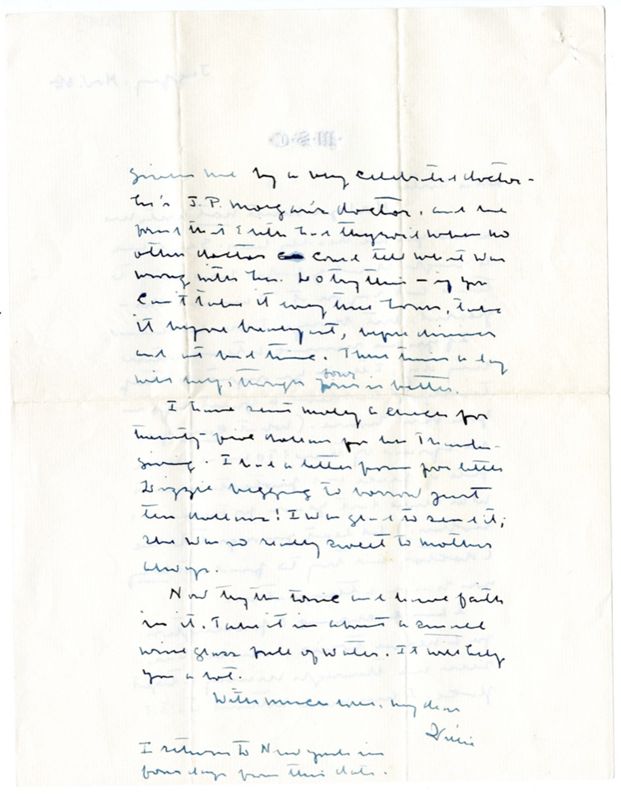 given me by a very celebrated doctor -
he's J.P. Morgan's doctor, and he
found that Edith had thyroid when no
other doctor could tell what was
wrong with her. Do try this - if you
can't take it every three hours, take
it before breakfast, before dinner
and at bed time. Three times a day
will help, though four is better.
four
I have sent Molly a check for
twenty-five dollars for her Thanks-
giving. I had a letter from poor little
Lizzie begging to borrow just
ten dollars! I was glad to send it;
she was so really sweet to mother
always.
Now try the tonic and have faith
in it. Take it in about a small
wine glass full of water. It will help
you a lot.
With much love, my dear
I return to New York in
four days from this date.